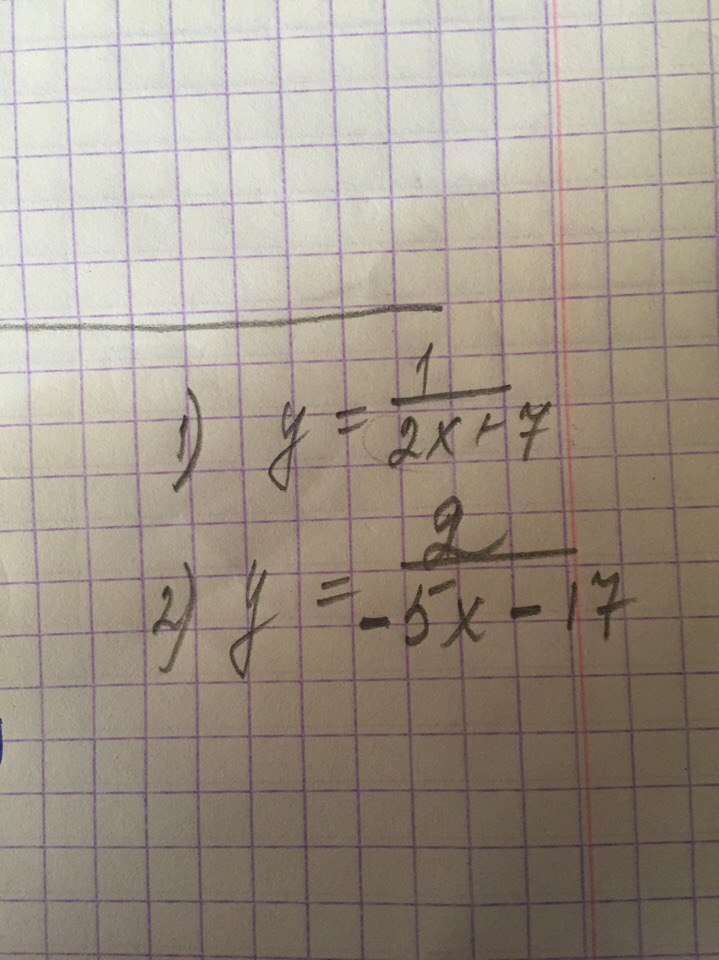 1) y = 1/(2x+7)
2) y = 2/(-5x-17)